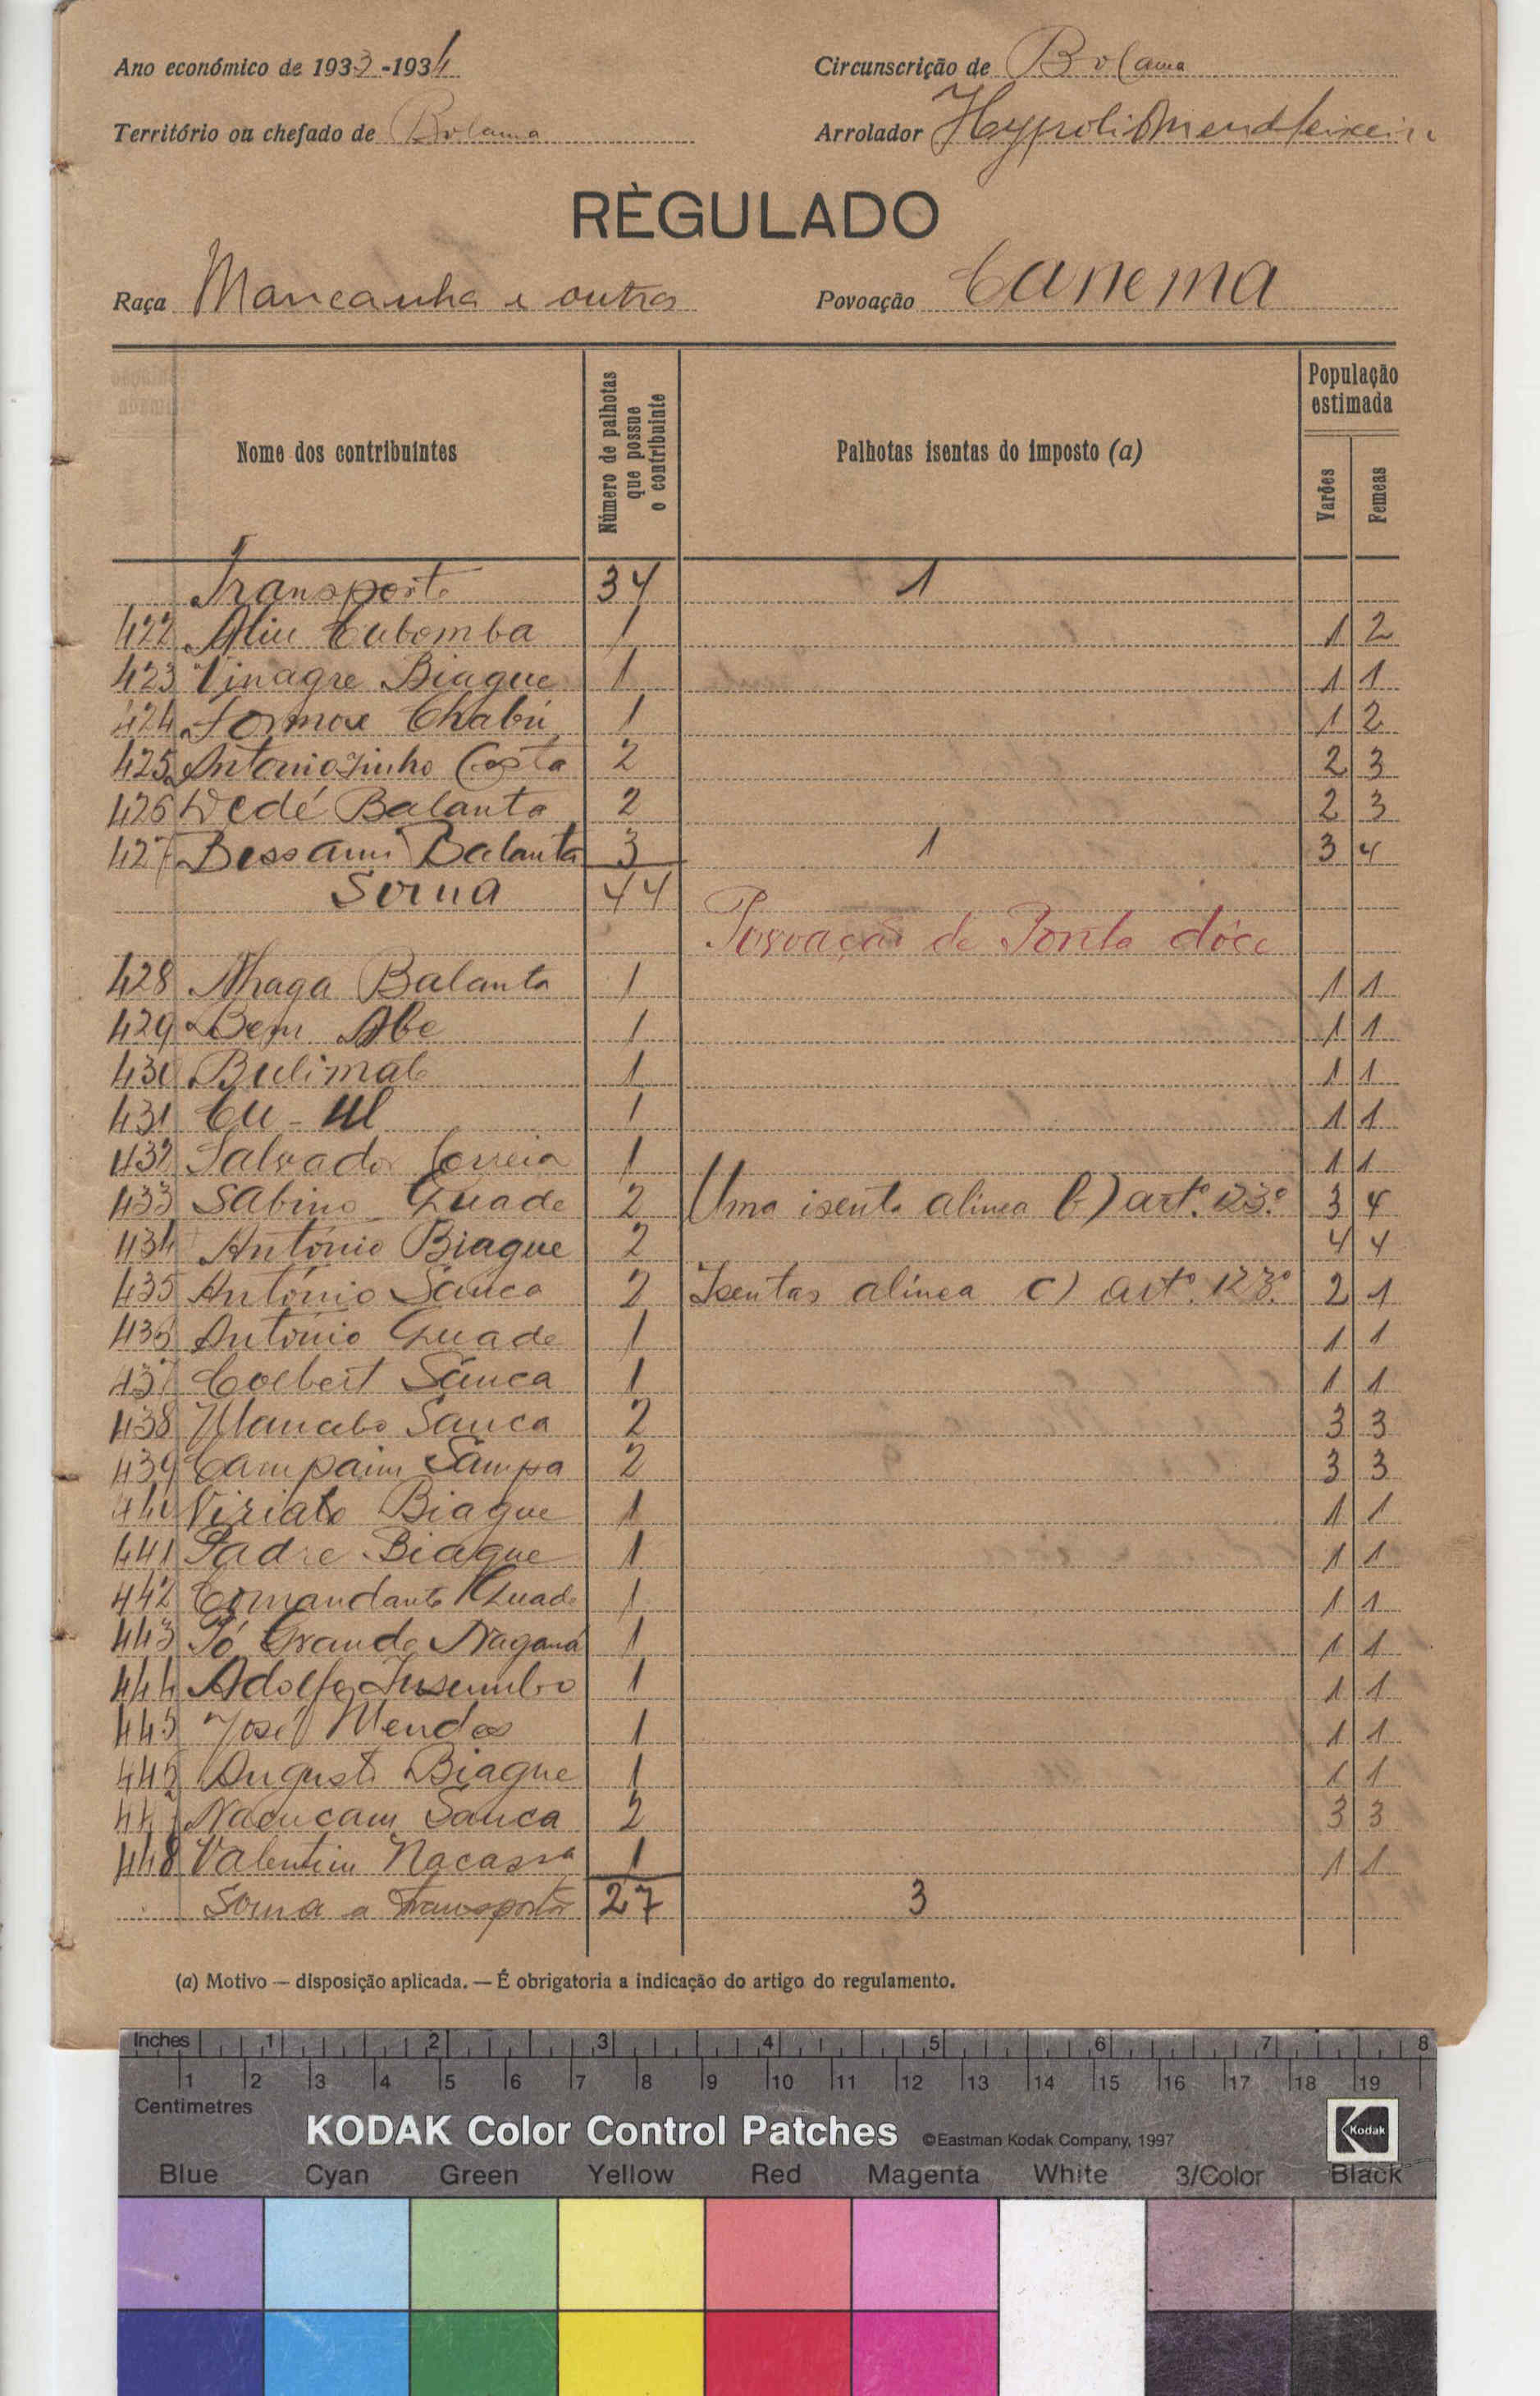 Ano económico de 1933-1934 Circunscrição de Bolama
Território ou chefado de Bolama Arrolador
RÈGULADO
Raça Mancanha e outros Povoação Canema
Nome dos contribuintes Número de palhotas que possue o contribuinte Palhotas isentas do imposto (a) População estimada Varões Femeas
Transporte 34 1
422 Aliu Cubomba 1 1 2
423 Vinagre Biague 1 1 1
424 Chabú 1 1 2
425 Antoniozinho Costa 2 2 3
426 Dedé Balanta 2 2 3
427 Bessam Balanta 3 1 3 4
Soma 44
Povoação de Ponta dôce
428 Nhaga Balanta 1 1 1
429 Bem Abe 1 1 1
430 Bulimale 1 1 1
431 Cu-Ul 1 1 1
432 Salvador Correia 1 1 1
433 Sabino Quade 2 Uma isenta alinea b) artº. 123.º 3 4
434 António Biague 2 4 4
435 António Sanca 2 Isentas alínea c) artº. 123º 2 1
436 António Quade 1 1 1
437 Coebert Sanca 1 1 1
438 Mancabo Sanca 2 3 3
439 Campaim Sampa 2 3 3
440 Viriato Biague 1 1 1
441 Padre Biague 1 1 1
442 Comandante Quade 1 1 1
443 Tó Grande Nagana 1 1 1
444 Adolfo 1 1 1
445 José Mendes 1 1 1
446 Augusto Biague 1 1 1
447 Nacucam Sanca 2 3 3
448 Valentim Nacassa 1 1 1
Soma a transportar 27 3
(a) Motivo — disposição aplicada. — É obrigatoria a indicação do artigo do regulamento.
Inches 1 2 3 4 5 6 7 8
1 2 3 4 5 6 7 8 9 10 11 12 13 14 15 16 17 18 19
Centimetres
KODAK Color Control Patches ©Eastman Kodak Company, 1997 Kodak
Blue Cyan Green Yellow Red Magenta White 3/Color Black